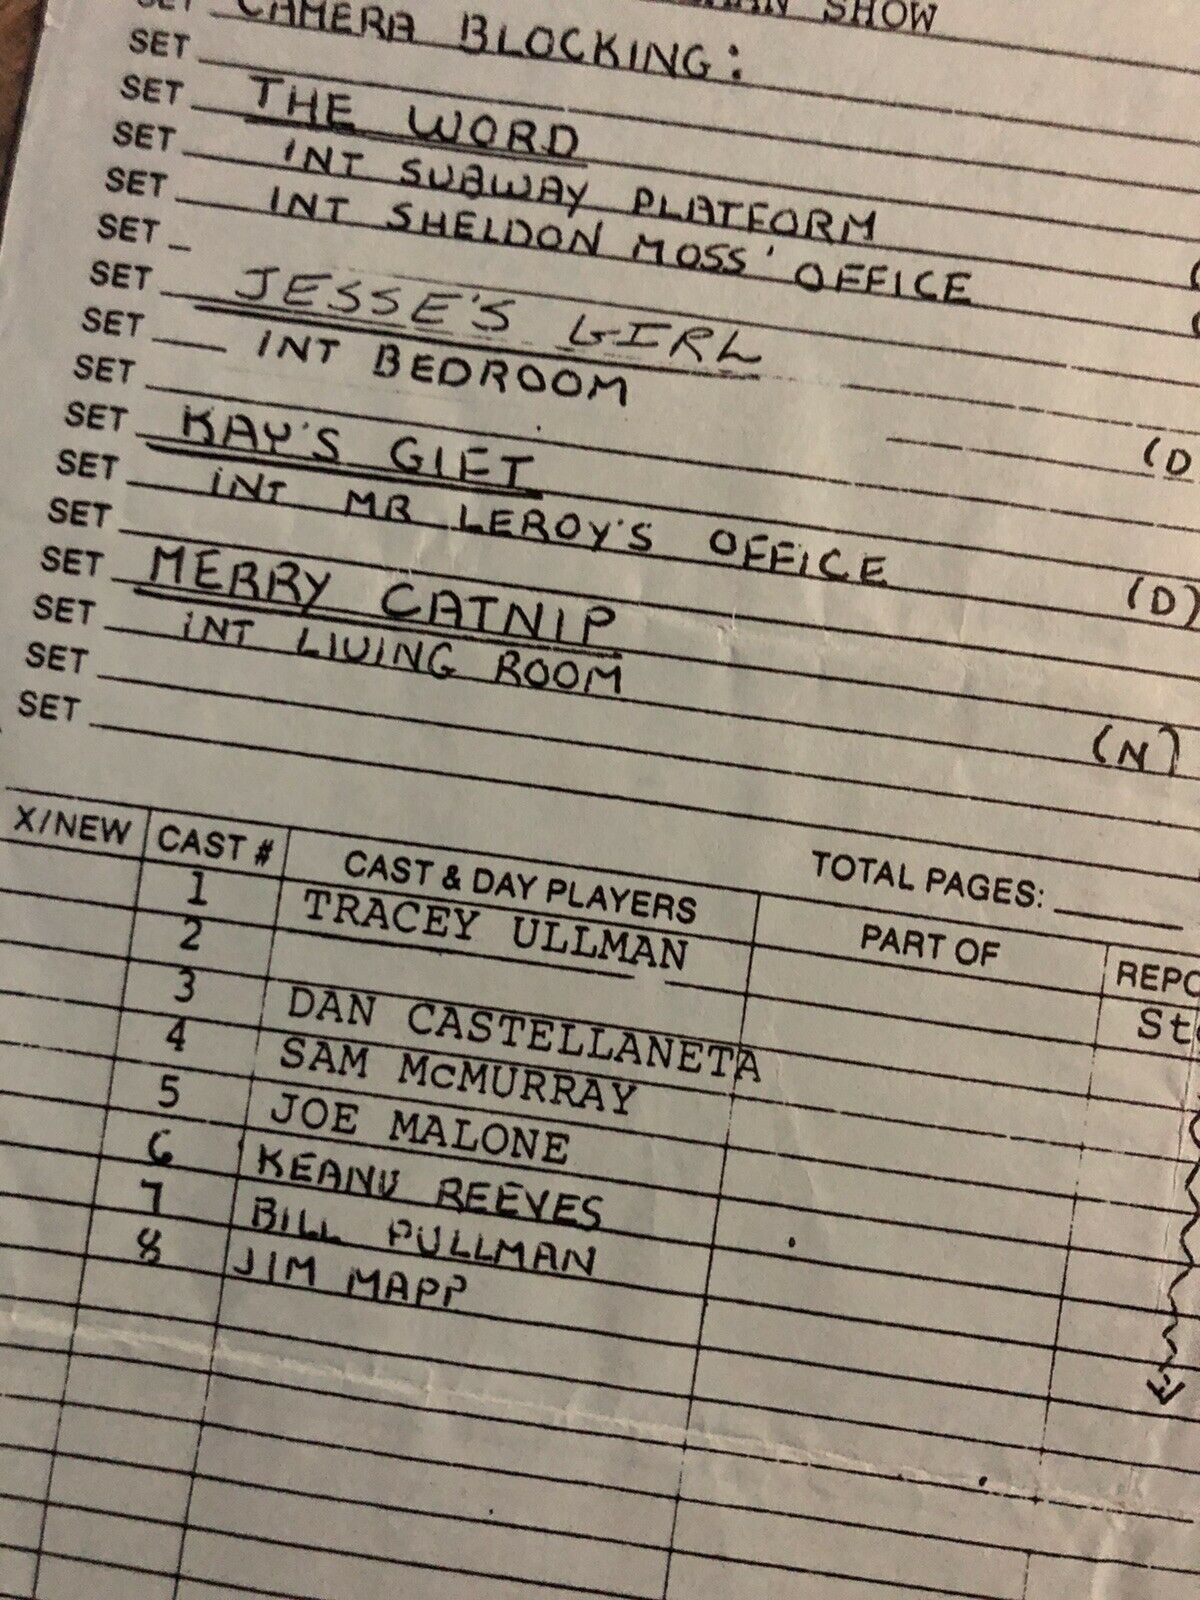 SHOW
SET CAMERA BLOCKING:
SET
SET THE WORD
SET INT SUBWAY PLATFORM
SET INT SHELDON MOSS' OFFICE
SET
SET JESSE'S GIRL
SET INT BEDROOM
SET (D
SET KAY'S GIFT
SET INT MR LEROY'S OFFICE
SET (D)
SET MERRY CATNIP
SET INT LIVING ROOM
SET (N)
SET
TOTAL PAGES:
X/NEW CAST # CAST & DAY PLAYERS PART OF REPO
1 TRACEY ULLMAN St
2
3 DAN CASTELLANETA
4 SAM McMURRAY
5 JOE MALONE
6 KEANU REEVES
7 BILL PULLMAN
8 JIM MAPP